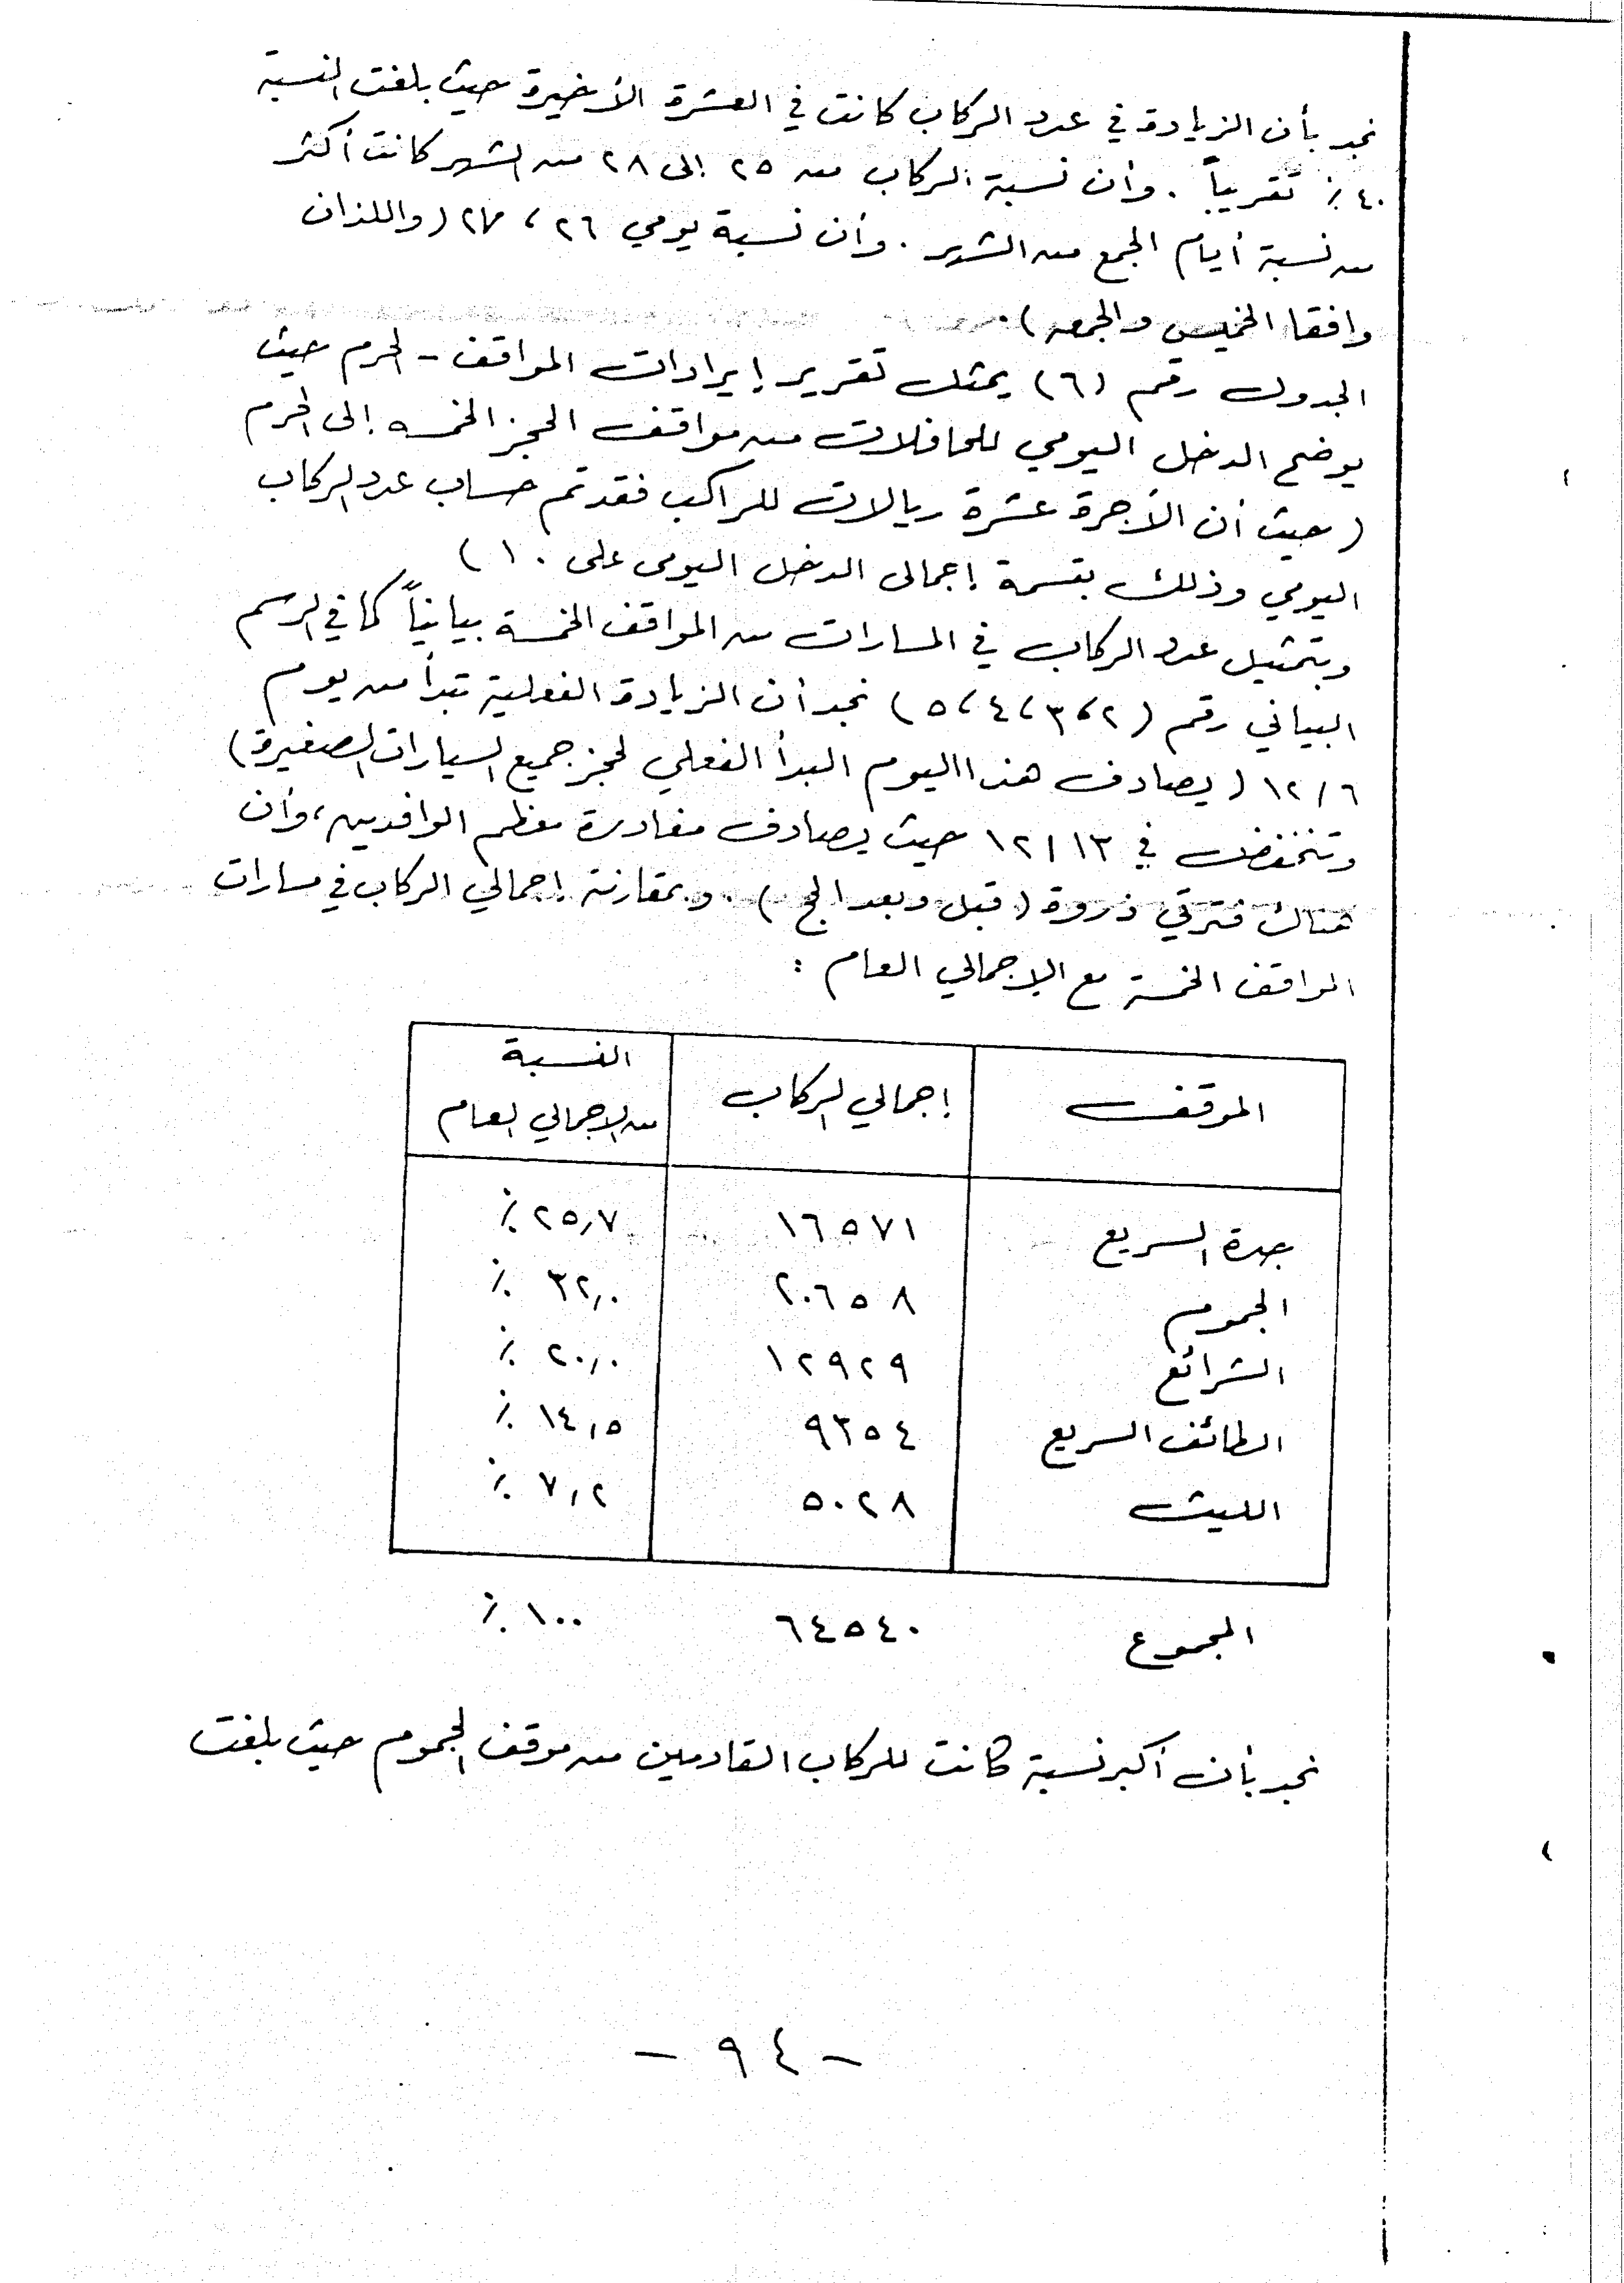 نجد بأن الزيادة في عدد الركاب كانت في العشرة الأخيرة حيث بلغت النسبة
٤٠ ٪ تقريباً . وأن نسبة الركاب من ٢٥ إلى ٢٨ من الشهر كانت أكثر
من نسبة أيام الجمع من الشهر . وأن نسبة يومي ٢٦ ، ٢٧ ( واللذان
وافقا الخميس والجمعه ) .
الجدول رقم (٦) يمثل تقرير إيرادات المواقف - الحرم حيث
يوضح الدخل اليومي للحافلات من مواقف الحجز الخمسه إلى الحرم
( حيث أن الأجرة عشرة ريالات للراكب فقد تم حساب عدد الركاب
اليومي وذلك بقسمة إجمالى الدخل اليومى على ١٠ )
وبتمثيل عدد الركاب في المسارات من المواقف الخمسة بيانياً كما في الرسم
البياني رقم ( ٢ ، ٣ ، ٤ ، ٥ ) نجد أن الزيادة الفعلية تبدأ من يوم
١٢/٦ ( يصادف هذا اليوم البدأ الفعلي لحجز جميع السيارات الصغيرة )
وتنخفض في ١٢/١٣ حيث يصادف مغادرة معظم الوافدين ، وأن
هناك فترتي ذروة ( قبل وبعد الحج ) . وبمقارنة إجمالي الركاب في مسارات
المواقف الخمسة مع الإجمالي العام :
الموقف إجمالي الركاب النسبة
من الاجمالي العام
جدة السريع ١٦٥٧١ ٢٥,٧ ٪
الجموم ٢٠٦٥٨ ٣٢,٠ ٪
الشرائع ١٢٩٢٩ ٢٠,٠ ٪
الطائف السريع ٩٣٥٤ ١٤,٥ ٪
الليث ٥٠٢٨ ٧,٢ ٪
المجموع ٦٤٥٤٠ ١٠٠ ٪
نجد بأن أكبر نسبة كانت للركاب القادمين من موقف الجموم حيث بلغت
- ٩٤ -